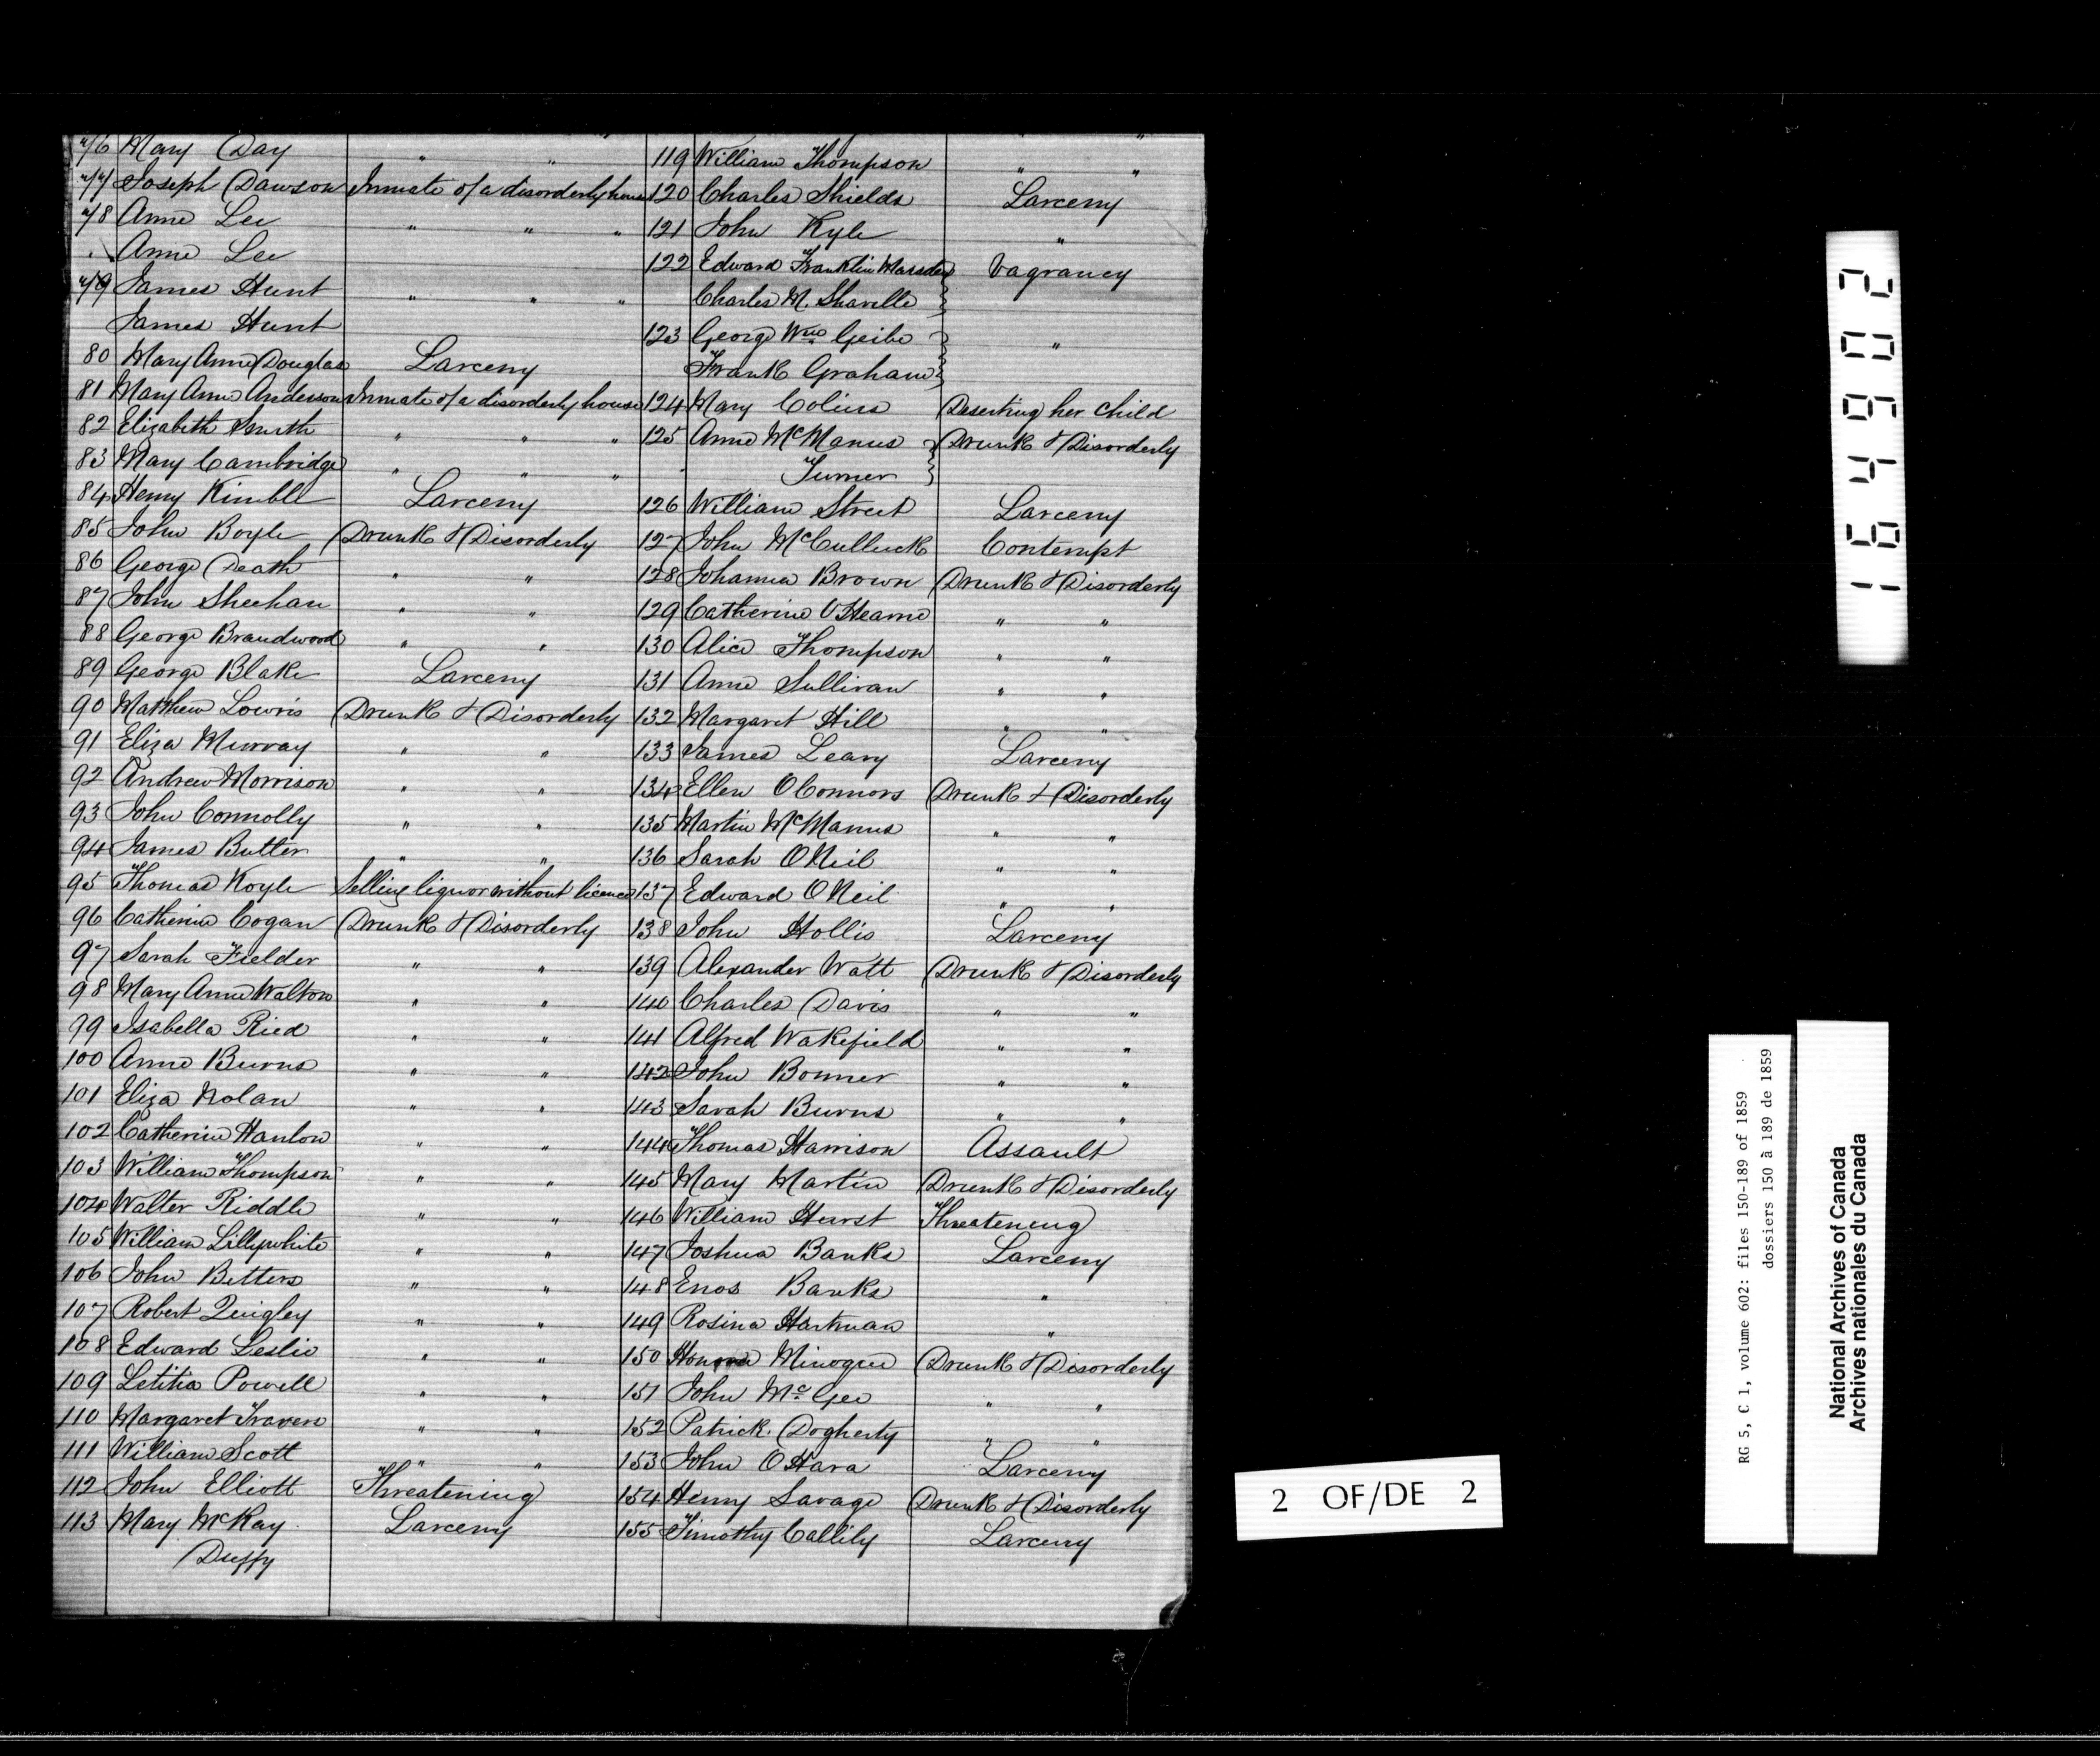 76 Mary Day " "
77 Joseph Dawson Inmate of a disorderly house
78 Anne Lee " " "
Anne Lee
79 James Hunt " " "
James Hunt
80 Mary Anne Douglas Larceny
81 Mary Anne Anderson Inmate of a disorderly house
82 Elizabeth Smith " " "
83 Mary Cambridge " " "
84 Henry Kimble Larceny
85 John Boyle Drunk & Disorderly
86 George Death " "
87 John Sheehan " "
88 George Brandwood " "
89 George Blake Larceny
90 Matthew Lowris Drunk & Disorderly
91 Eliza Murray " "
92 Andrew Morrison " "
93 John Connolly " "
94 James Butter " "
95 Thomas Koyle Selling liquor without licence
96 Catherine Cogan Drunk & Disorderly
97 Sarah Fielder " "
98 Mary Anne Walton " "
99 Isabella Ried " "
100 Anne Burns " "
101 Eliza Nolan " "
102 Catherine Hanlon " "
103 William Thompson " "
104 Walter Riddle " "
105 William Lillywhite " "
106 John Betters " "
107 Robert Quigley " "
108 Edward Leslie " "
109 Letitia Powell " "
110 Margaret Travers " "
111 William Scott " "
112 John Elliott Threatening
113 Mary McKay Larceny
Duffy
" "
119 William Thompson " "
120 Charles Shields Larceny
121 John Kyle "
122 Edward Franklin Marsden Vagrancy
Charles M. Shavelle
123 George Wm Geibe "
Frank Graham
124 Mary Colins Deserting her child
125 Anne McManus Drunk & Disorderly
" Turner
126 William Street Larceny
127 John McCulluck Contempt
128 Johanna Brown Drunk & Disorderly
129 Catherine OHearne " "
130 Alice Thompson " "
131 Anne Sullivan " "
132 Margaret Hill " "
133 James Leary Larceny
134 Ellen OConnors Drunk & Disorderly
135 Martin McManus " "
136 Sarah ONeil " "
137 Edward ONeil " "
138 John Hollis Larceny
139 Alexander Watt Drunk & Disorderly
140 Charles Davis " "
141 Alfred Wakefield " "
142 John Bonner " "
143 Sarah Burns " "
144 Thomas Harrison Assault
145 Mary Martin Drunk & Disorderly
146 William Hurst Threatening
147 Joshua Banks Larceny
148 Enos Banks "
149 Rosina Hartman "
150 Honora Minogue Drunk & Disorderly
151 John McGee " "
152 Patrick Dogherty " "
153 John OHara Larceny
154 Henry Savage Drunk & Disorderly
155 Timothy Callily Larceny
2 OF/DE 2
164902
RG 5, C 1, volume 602: files 150-189 of 1859
dossiers 150 à 189 de 1859
National Archives of Canada
Archives nationales du Canada